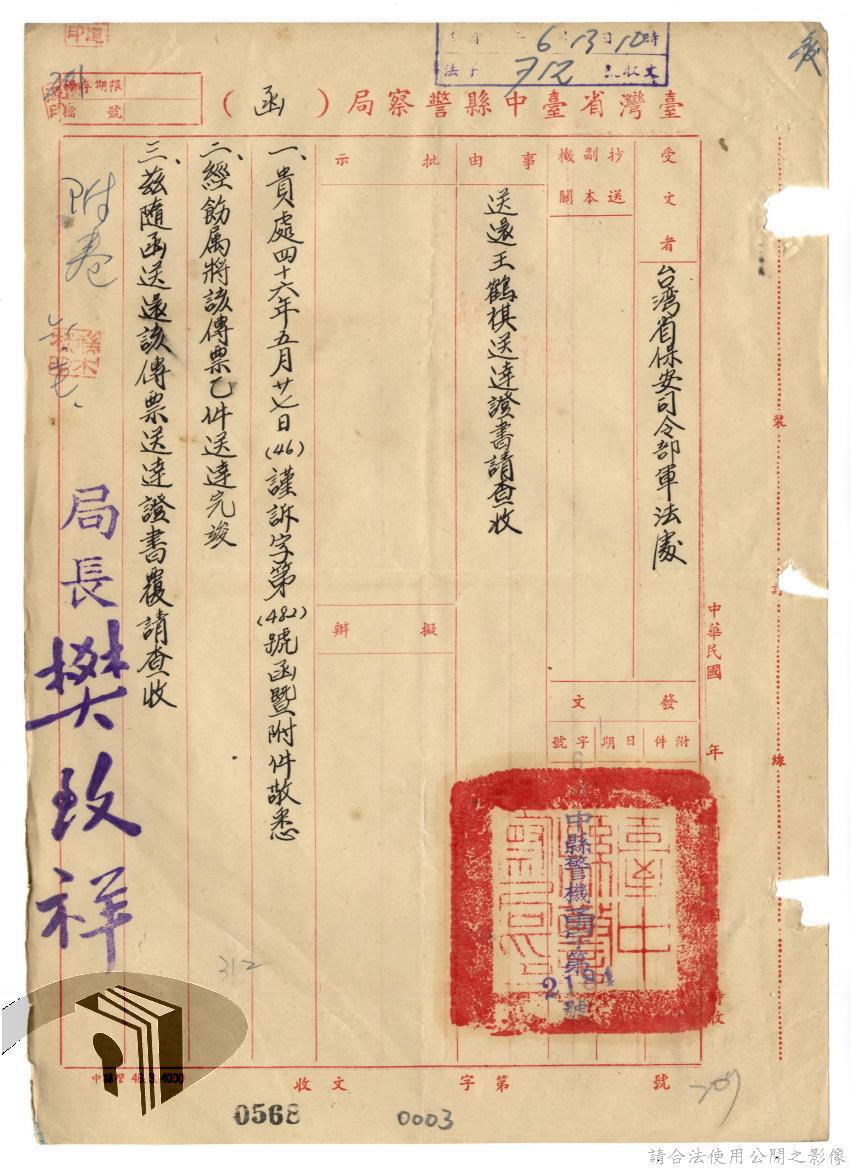 6 13 10時
712
臺灣省臺中縣警察局（函）
限期存
檔號
受文者
台湾省保安司令部軍法處
抄送副本機關
事由
送還王鶴棋送達證書請查收
批示
擬辦
發文
附件
日期
字號
中華民國 年
中縣警機 字第2184號
一、貴處四十六年五月廿七日(46)謹訴字第(482)號函暨附件敬悉
二、經飭属將該傳票乙件送達完竣
三、茲隨函送還該傳票送達證書覆請查收
附卷
局長樊玫祥
312
收文 字第 號
0568
0003
裝
訂
線
請合法使用公開之影像